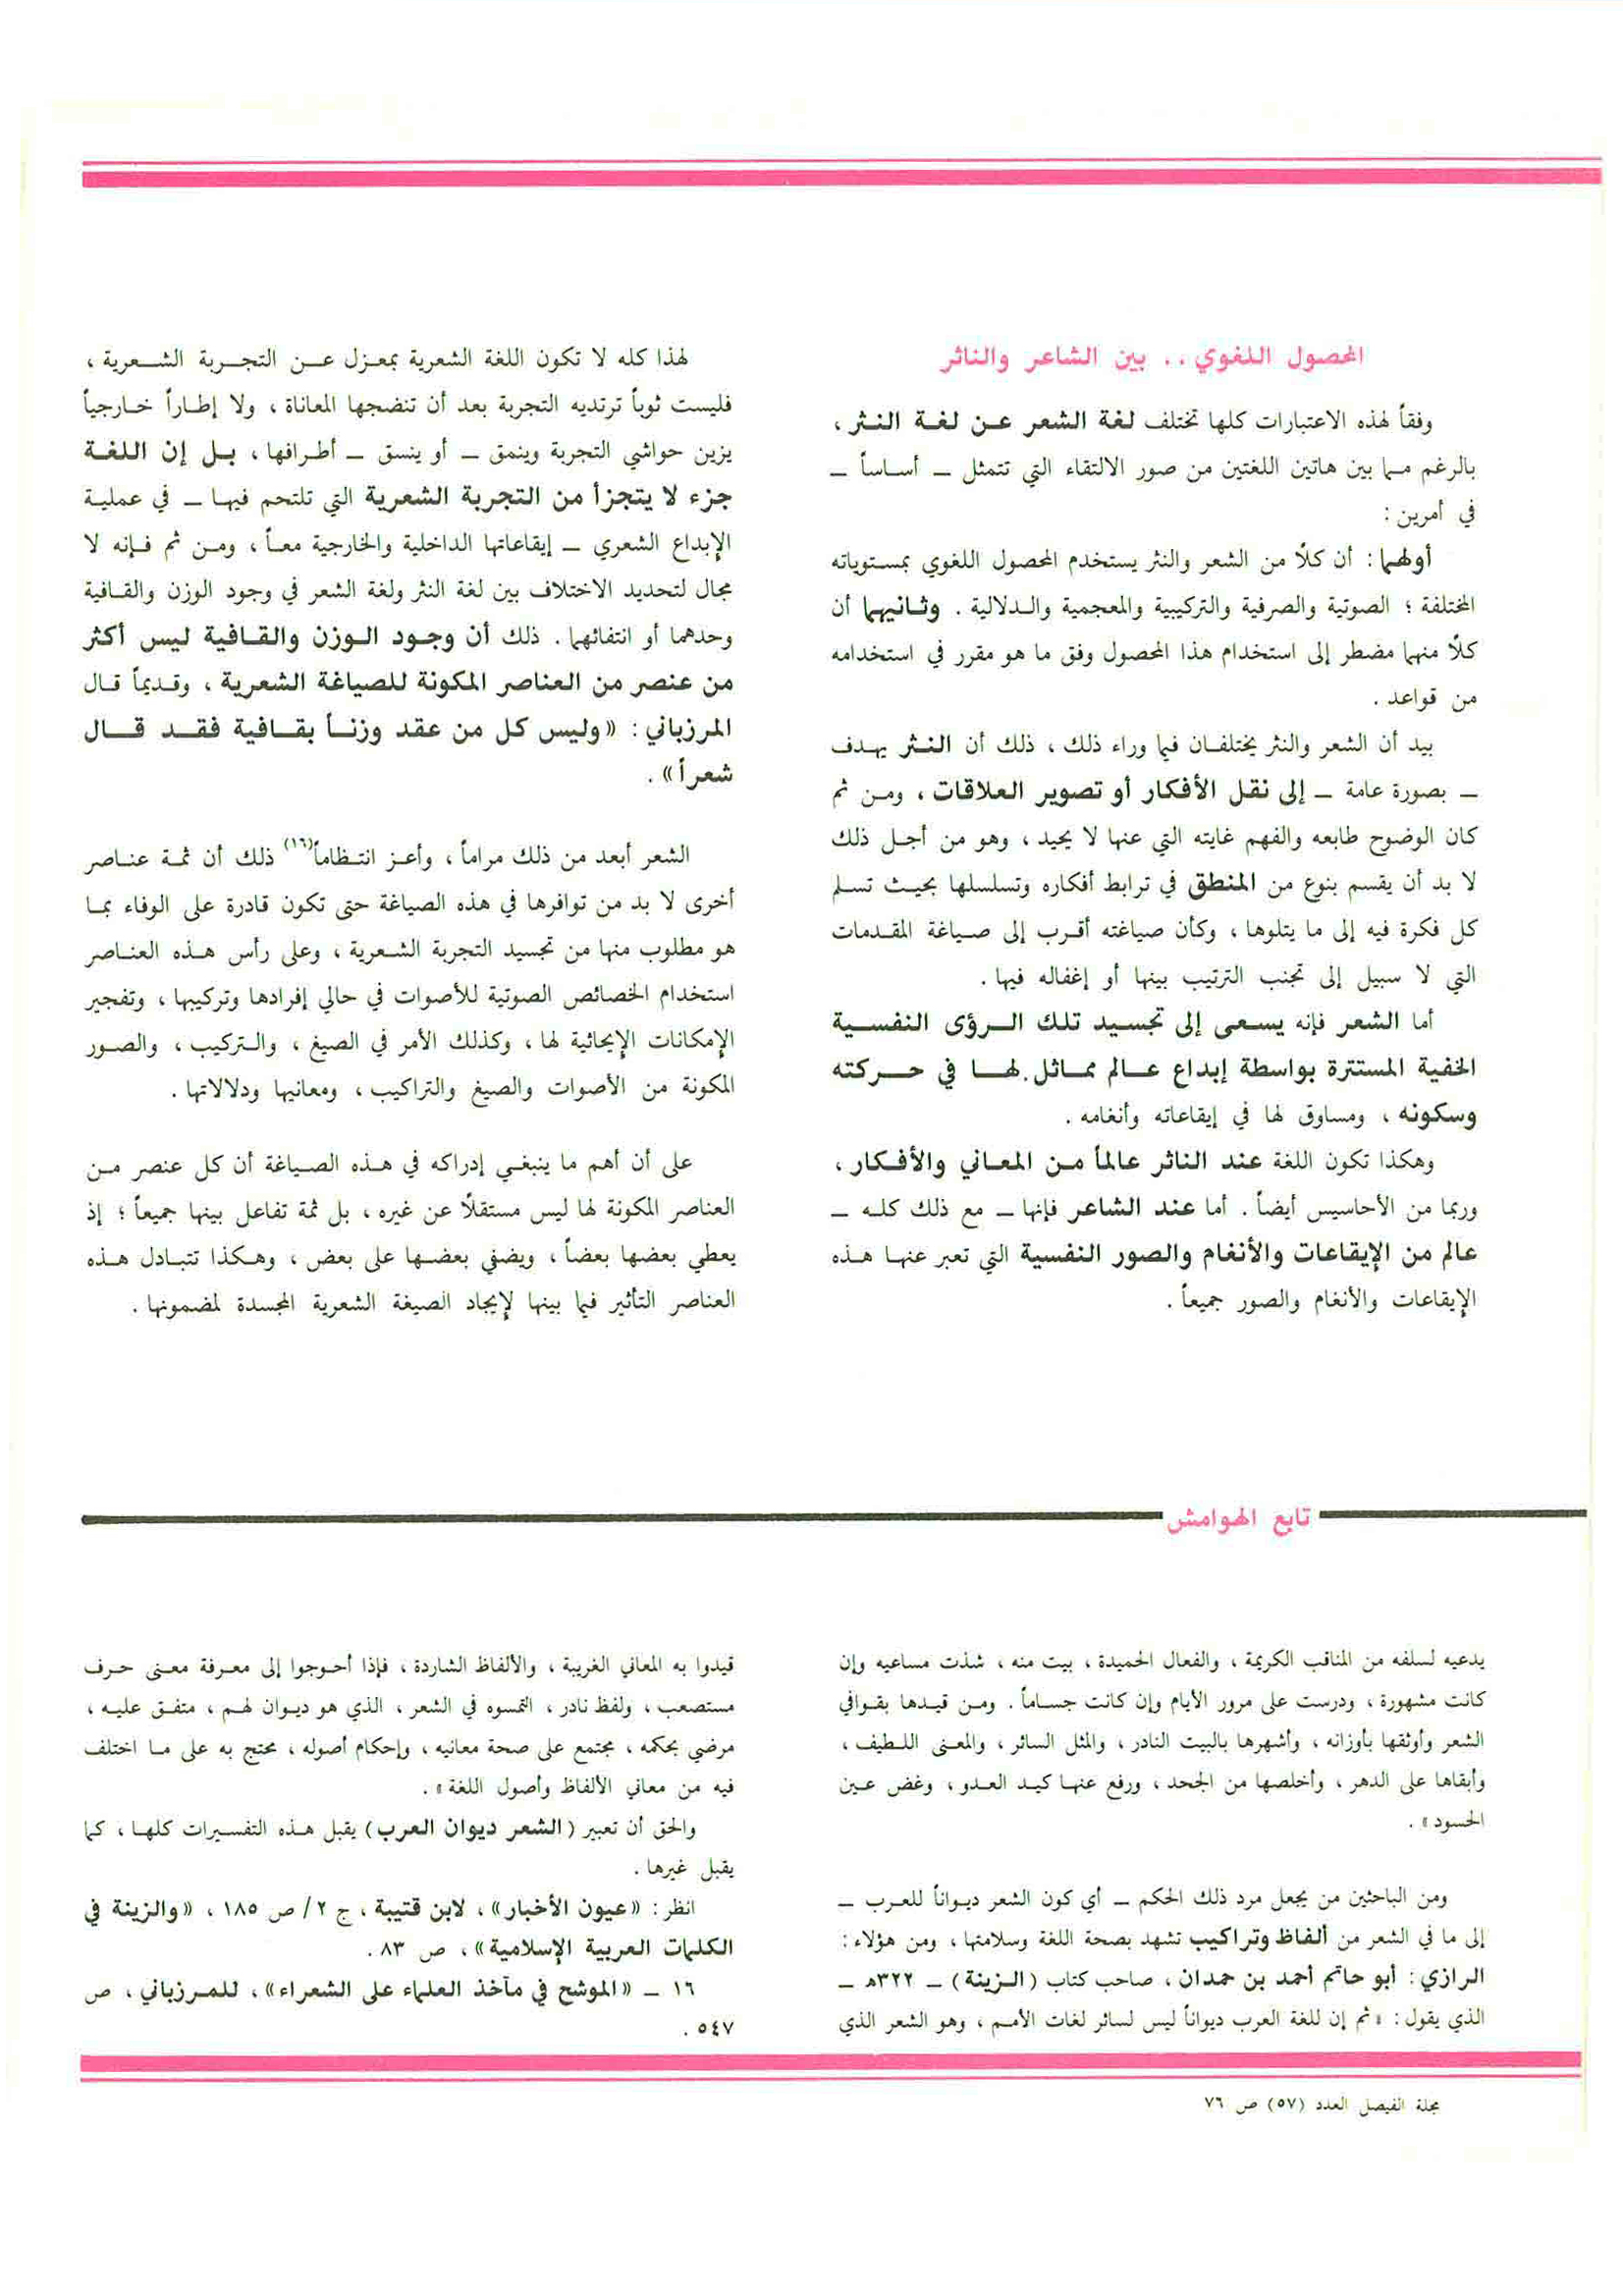 المحصول اللغوي .. بين الشاعر والناثر
وفقاً لهذه الاعتبارات كلها تختلف لغة الشعر عن لغة النثر ،
بالرغم مما بين هاتين اللغتين من صور الالتقاء التي تتمثل – أساساً –
في أمرين :
أولهما : أن كلاً من الشعر والنثر يستخدم المحصول اللغوي بمستوياته
المختلفة ؛ الصوتية والصرفية والتركيبية والمعجمية والدلالية . وثانيهما أن
كلاً منهما مضطر إلى استخدام هذا المحصول وفق ما هو مقرر في استخدامه
من قواعد .
بيد أن الشعر والنثر يختلفان فيما وراء ذلك ، ذلك أن النثر يهدف
– بصورة عامة – إلى نقل الأفكار أو تصوير العلاقات ، ومن ثم
كان الوضوح طابعه والفهم غايته التي عنها لا يحيد ، وهو من أجل ذلك
لا بد أن يقسم بنوع من المنطق في ترابط أفكاره وتسلسلها بحيث تسلم
كل فكرة فيه إلى ما يتلوها ، وكأن صياغته أقرب إلى صياغة المقدمات
التي لا سبيل إلى تجنب الترتيب بينها أو إغفاله فيها .
أما الشعر فإنه يسعى إلى تجسيد تلك الرؤى النفسية
الخفية المستترة بواسطة إبداع عالم مماثل لها في حركته
وسكونه ، ومساوق لها في إيقاعاته وأنغامه .
وهكذا تكون اللغة عند الناثر عالماً من المعاني والأفكار ،
وربما من الأحاسيس أيضاً . أما عند الشاعر فإنها – مع ذلك كله –
عالم من الإيقاعات والأنغام والصور النفسية التي تعبر عنها هذه
الإيقاعات والأنغام والصور جميعاً .
لهذا كله لا تكون اللغة الشعرية بمعزل عن التجربة الشعرية ،
فليست ثوباً ترتديه التجربة بعد أن تنضجها المعاناة ، ولا إطاراً خارجياً
يزين حواشي التجربة وينمق – أو ينسق – أطرافها ، بل إن اللغة
جزء لا يتجزأ من التجربة الشعرية التي تلتحم فيها – في عملية
الإبداع الشعري – إيقاعاتها الداخلية والخارجية معاً ، ومن ثم فإنه لا
مجال لتحديد الاختلاف بين لغة النثر ولغة الشعر في وجود الوزن والقافية
وحدهما أو انتفائهما . ذلك أن وجود الوزن والقافية ليس أكثر
من عنصر من العناصر المكونة للصياغة الشعرية ، وقديماً قال
المرزباني : «وليس كل من عقد وزناً بقافية فقد قال
شعراً» .
الشعر أبعد من ذلك مراماً ، وأعز انتظاماً(١٦) ذلك أن ثمة عناصر
أخرى لا بد من توافرها في هذه الصياغة حتى تكون قادرة على الوفاء بما
هو مطلوب منها من تجسيد التجربة الشعرية ، وعلى رأس هذه العناصر
استخدام الخصائص الصوتية للأصوات في حالي إفرادها وتركيبها ، وتفجير
الإمكانات الإيحائية لها ، وكذلك الأمر في الصيغ ، والتركيب ، والصور
المكونة من الأصوات والصيغ والتراكيب ، ومعانيها ودلالاتها .
على أن أهم ما ينبغي إدراكه في هذه الصياغة أن كل عنصر من
العناصر المكونة لها ليس مستقلاً عن غيره ، بل ثمة تفاعل بينها جميعاً ؛ إذ
يعطي بعضها بعضاً ، ويضفي بعضها على بعض ، وهكذا تتبادل هذه
العناصر التأثير فيما بينها لإيجاد الصيغة الشعرية المجسدة لمضمونها .
تابع الهوامش
يدعيه لسلفه من المناقب الكريمة ، والفعال الحميدة ، بيت منه ، شذت مساعيه وإن
كانت مشهورة ، ودرست على مرور الأيام وإن كانت جساماً . ومن قيدها بقوافي
الشعر وأوثقها بأوزانه ، وأشهرها بالبيت النادر ، والمثل السائر ، والمعنى اللطيف ،
وأبقاها على الدهر ، وأخلصها من الجحد ، ورفع عنها كيد العدو ، وغض عين
الحسود» .
ومن الباحثين من يجعل مرد ذلك الحكم – أي كون الشعر ديواناً للعرب –
إلى ما في الشعر من ألفاظ وتراكيب تشهد بصحة اللغة وسلامتها ، ومن هؤلاء :
الرازي : أبو حاتم أحمد بن حمدان ، صاحب كتاب (الزينة) – ٣٢٢هـ –
الذي يقول : «ثم إن للغة العرب ديواناً ليس لسائر لغات الأمم ، وهو الشعر الذي
قيدوا به المعاني الغريبة ، والألفاظ الشاردة ، فإذا أحوجوا إلى معرفة معنى حرف
مستصعب ، ولفظ نادر ، التمسوه في الشعر ، الذي هو ديوان لهم ، متفق عليه ،
مرضي بحكمه ، مجتمع على صحة معانيه ، وإحكام أصوله ، محتج به على ما اختلف
فيه من معاني الألفاظ وأصول اللغة» .
والحق أن تعبير (الشعر ديوان العرب) يقبل هذه التفسيرات كلها ، كما
يقبل غيرها .
انظر : «عيون الأخبار» ، لابن قتيبة ، ج ٢/ ص ١٨٥ ، «والزينة في
الكلمات العربية الإسلامية» ، ص ٨٣ .
١٦ – «الموشح في مآخذ العلماء على الشعراء» ، للمرزباني ، ص
٥٤٧ .
مجلة الفيصل العدد (٥٧) ص ٧٦